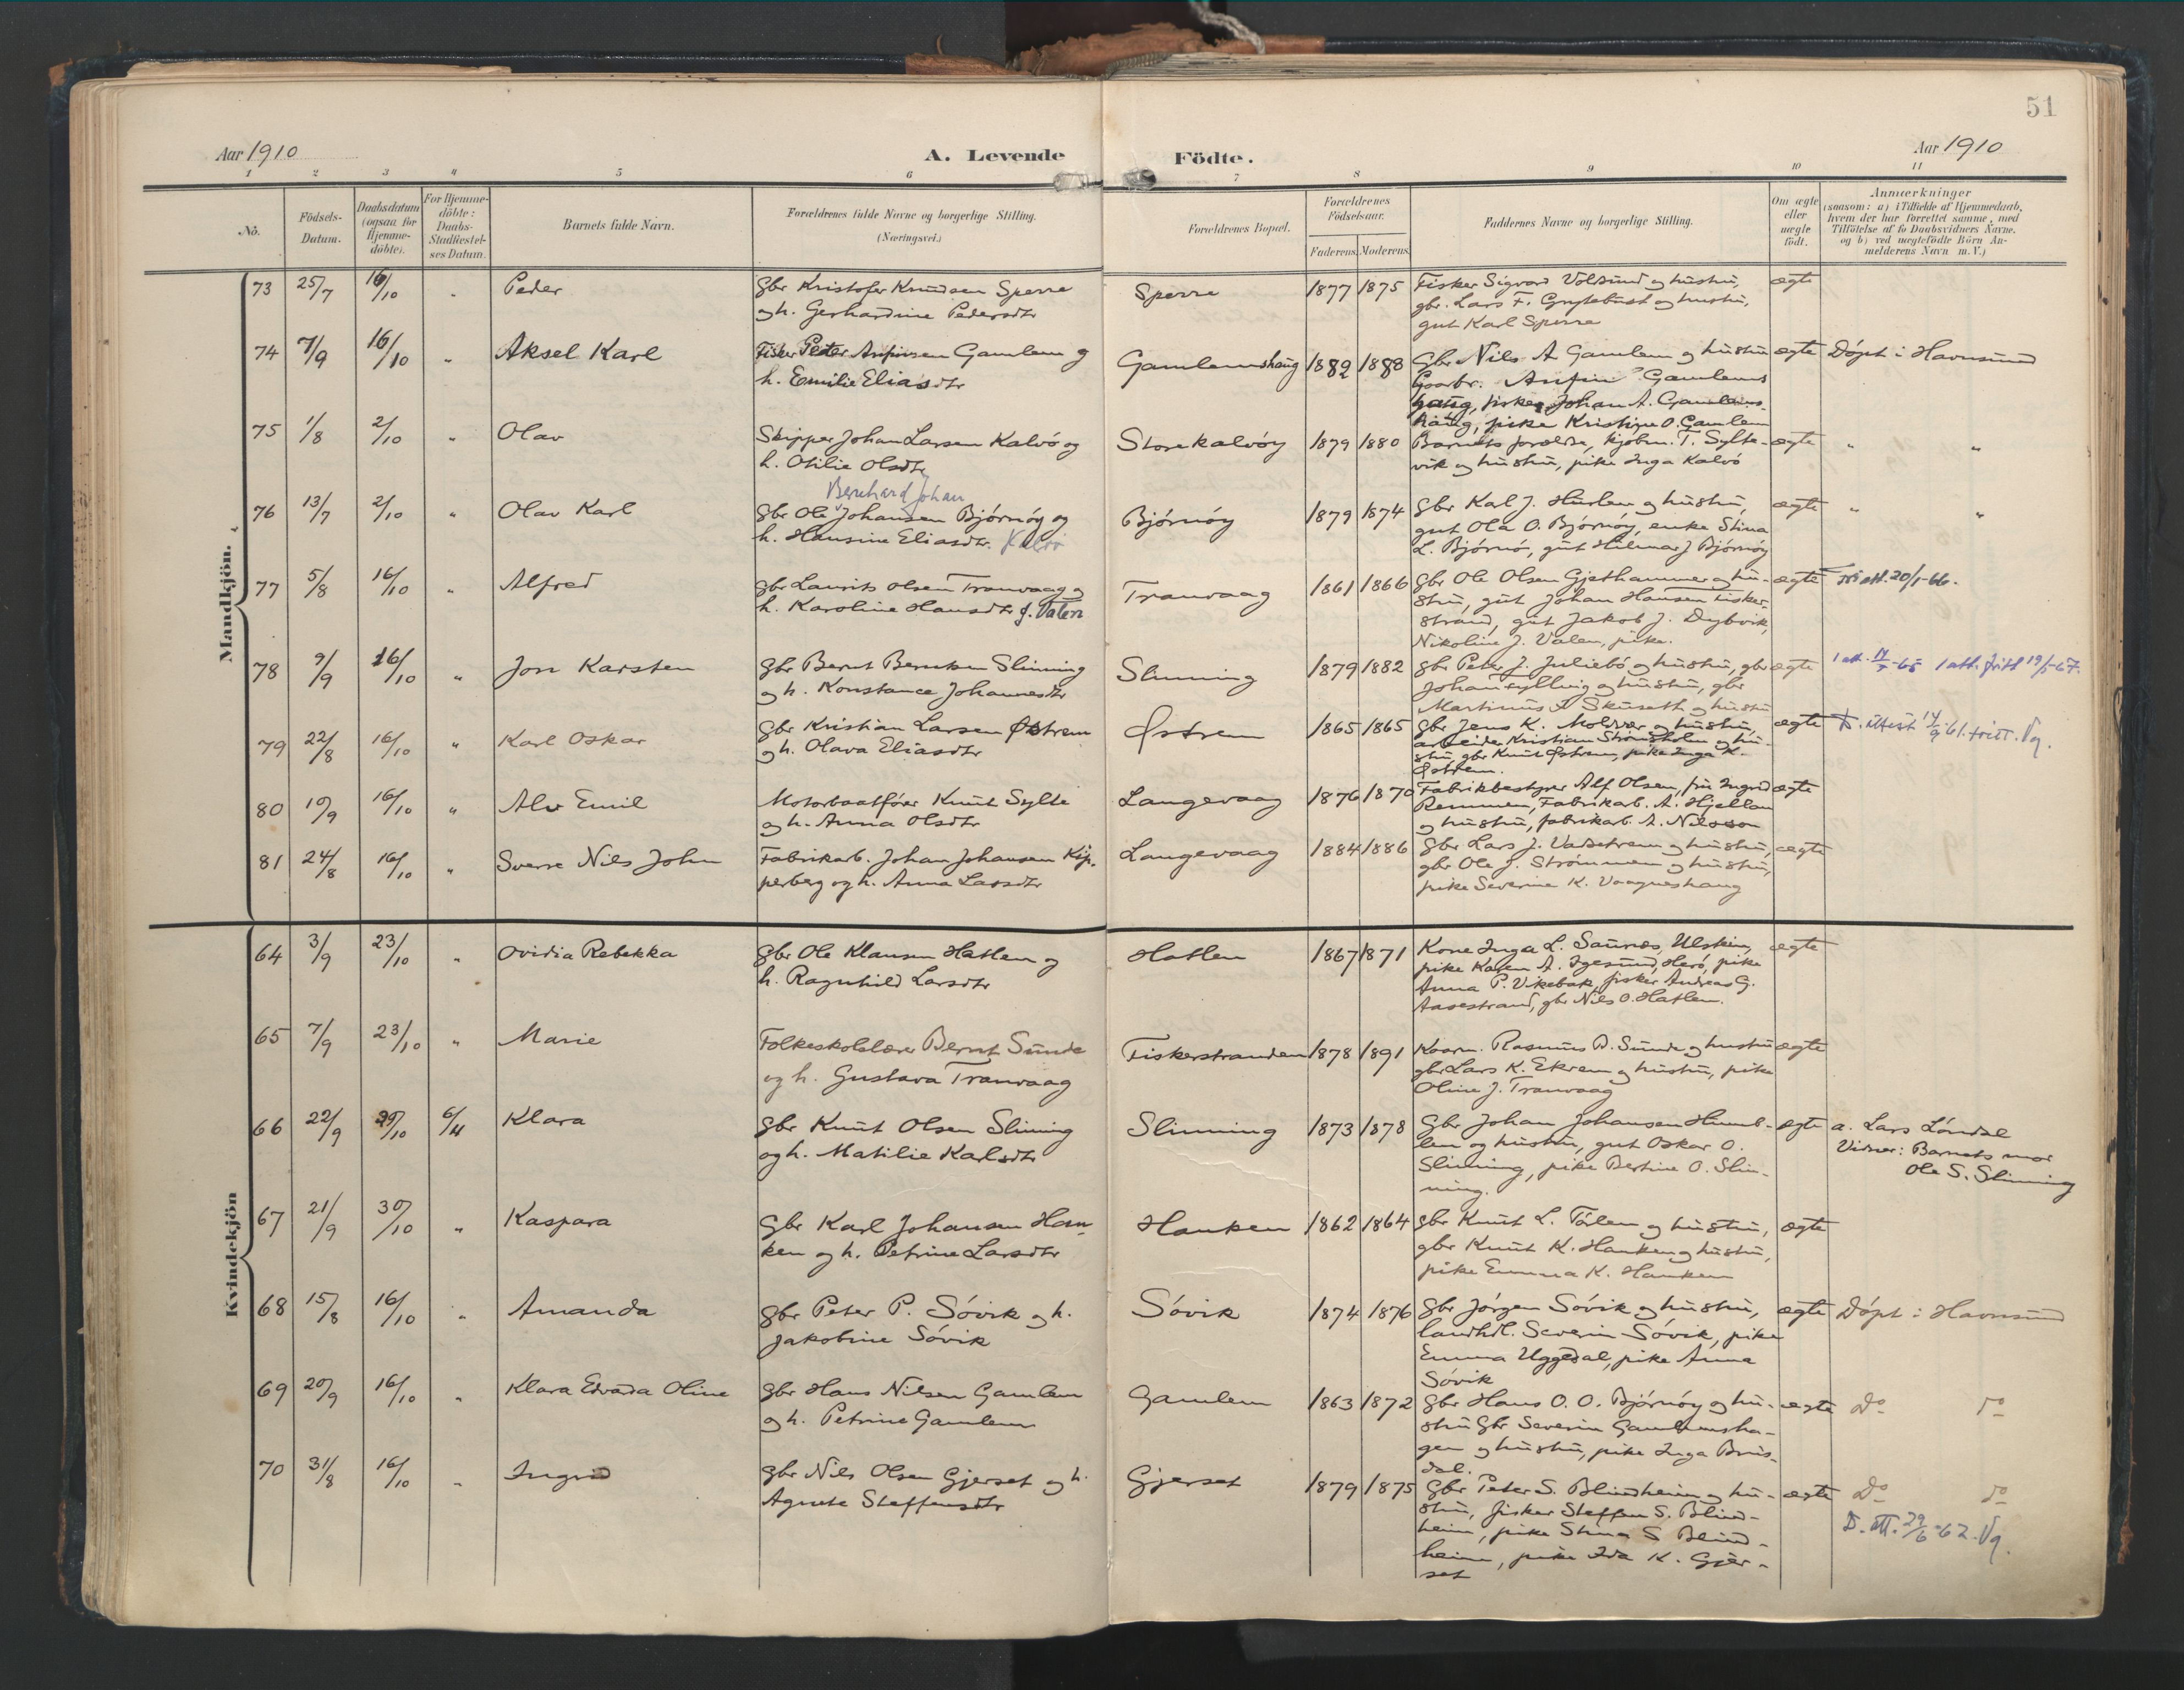 51
Aar 1910
A. Levende Födte.
Aar 1910
1 2 3 4 5 6 7 8 9 10 11
No.
Födsels-
Datum.
Daabsdatum
(ogsaa for
Hjemme-
döbte).
For Hjemme-
döbte:
Daabs-
Stadfæstel-
ses Datum.
Barnets fulde Navn.
Forældrenes fulde Navne og borgerlige Stilling.
(Næringsvei.)
Forældrenes Bopæl.
Forældrenes
Födselsaar.
Faderens. Moderens.
Faddernes Navne og borgerlige Stilling.
Om ægte
eller
uægte
födt.
Anmærkninger
(saasom: a) i Tilfælde af Hjemmedaab,
hvem der har forrettet samme, med
Tilföielse af to Daabsvidners Navne.
og b) ved uægtefödte Börn An-
melderens Navn m. V.)
Mandkjön.
73 25/7 16/10 " Peder
Gbr Kristofer Knudsen Sperre
og h. Gerhardine Pedersdtr
Sperre 1877 1875
Fisker Sigvard Voldsund og hustru,
gbr. Lars F. Grytebust og hustru,
gut Karl Sperre
ægte
74 7/9 16/10 " Aksel Karl
Fisker Peder Anfinsen Gamlem og
h. Emilie Eliasdtr
Gamlemshaug 1882 1888
Gbr Nils A Gamlem og hustru
Gaarbr. Anfin Gamlems
haug, fisker Johan A. Gamlems-
haug, pike Kristine O. Gamlem
ægte Döpt i Havnsund
75 1/8 2/10 " Olav
Skipper Johan Larsen Kalvö og
h. Otilie Olsdtr
Storekalvöy 1879 1880
Barnets forældre, kjöbm. T. Sylte-
vik og hustru, pike Inga Kalvö
ægte " "
76 13/7 2/10 " Olav Karl
Bernhard Johan
Gbr Ole Johansen Björnöy og
h. Hansine Eliasdtr. Kalvö
Björnöy 1879 1874
Gbr Kal J. Hurlen og hustru,
gut Ola O. Björnöy, enke Stina
L. Björnö, gut Hilmar J Björnöy
ægte " "
77 5/8 16/10 " Alfred
gbr Laurits Olsen Tranvaag og
h. Karoline Hansdtr f. Valen
Tranvaag 1861 1866
Gbr Ole Olsen Gjethammer og hu-
stru, gut Johan Hansen Fisker-
strand, gut Jakob J. Dybvik,
Nikoline J. Valen, pike.
ægte att. 20/1-66.
78 9/9 16/10 " Jon Karsten
Gbr Bernt Berntsen Slinning
og h. Konstance Johannesdtr
Slinning 1879 1882
Gbr Peter J. Juliebö og hustru, gbr
Johan Fylling og hustru, gbr
Martinus A Skuseth og hustru
ægte 1 att. -65 1 att. fritt 19/5-67.
79 22/8 16/10 " Karl Oskar
Gbr Kristian Larsen Østrem
og h. Olava Eliasdtr
Østrem 1865 1865
Gbr Jens K. Moldvær og hustru,
arbeider Kristian Strömsholm og hu-
stru, gbr Knut Østrem, pike Inga K.
Østrem.
ægte D. attest 14/9-61. fritt. Vg.
80 19/9 16/10 " Alv Emil
Motorbaatförer Knut Sylte
og h. Anna Olsdtr
Langevaag 1876 1870
Fabrikbestyrer Alf Olsen, fru Ingrid
Remmen, Fabrikarb. A. Hjellan
og hustru, fabrikarb. A. Nilsson
ægte
81 24/8 16/10 " Sverre Nils John
Fabrikarb. Johan Johansen Kop-
perberg og h. Anna Larsdtr
Langevaag 1884 1886
Gbr Lars J. Vadstrem og hustru,
gbr Ole J. Strömmen og hustru,
pike Severine K. Vaagneshaug
ægte
Kvindekjön
64 3/9 23/10 " Ovidia Rebekka
Gbr Ole Klausen Hatlen og
h. Ragnhild Larsdtr
Hatlen 1867 1871
Kone Inga L. Saunes, Ulstein,
pike Karen A. Igesund, Herö, pike
Anna P. Vikebak, fisker Andreas G.
Aasestrand, gbr Nils O. Hatlen.
ægte
65 7/9 23/10 " Marie
Folkeskolelærer Bernt Sunde
og h. Gustava Tranvaag
Fiskerstranden 1878 1891
Kaarm. Rasmus B. Sunde og hustru
gbr Lars K. Ekrem og hustru, pike
Oline J. Tranvaag
ægte
66 22/9 30/10 6/11 Klara
Gbr Knut Olsen Slinning
og h. Matilie Karlsdtr
Slinning 1873 1878
Gbr Johan Johansen Humb-
len og hustru, gut Oskar O.
Slinning, pike Bertine O. Slin-
ning.
ægte a. Lars Löndal
Vidner: Barnets mor
Ole S. Slinning
67 21/9 30/10 " Kaspara
Gbr Karl Johansen Han-
ken og h. Petrine Larsdtr
Hanken 1862 1864
Gbr Knut L. Törlen og hustru,
gbr Knut K. Hanken og hustru,
pike Emma K. Hanken
ægte
68 15/8 16/10 " Amanda
Gbr Peter P. Sövik og h.
Jakobine Sövik
Sövik 1874 1876
Gbr Jörgen Sövik og hustru,
landhdl. Severin Sövik, pike
Emma Uggedal, pike Anna
Sövik
ægte Döpt i Havnsund
69 20/9 16/10 " Klara Edvarda Oline
Gbr Hans Nilsen Gamlem
og h. Petrine Gamlem
Gamlem 1863 1872
Gbr Hans O. O. Björnöy og hu-
stru Gbr Severin Gamlemsha-
gen og hustru, pike Inga Brus-
dal.
ægte Do do
70 31/8 16/10 " Ingrid
Gbr Nils Olsen Gjerset og h.
Agnete Steffensdtr
Gjerset 1879 1875
Gbr Peter S. Blindheim og hu-
stru, fisker Steffen S. Blind-
heim, pike Stina S Blind-
heim, pike Ida K. Gjer-
set
ægte Do do
D. att. 29/6-62. Vg.